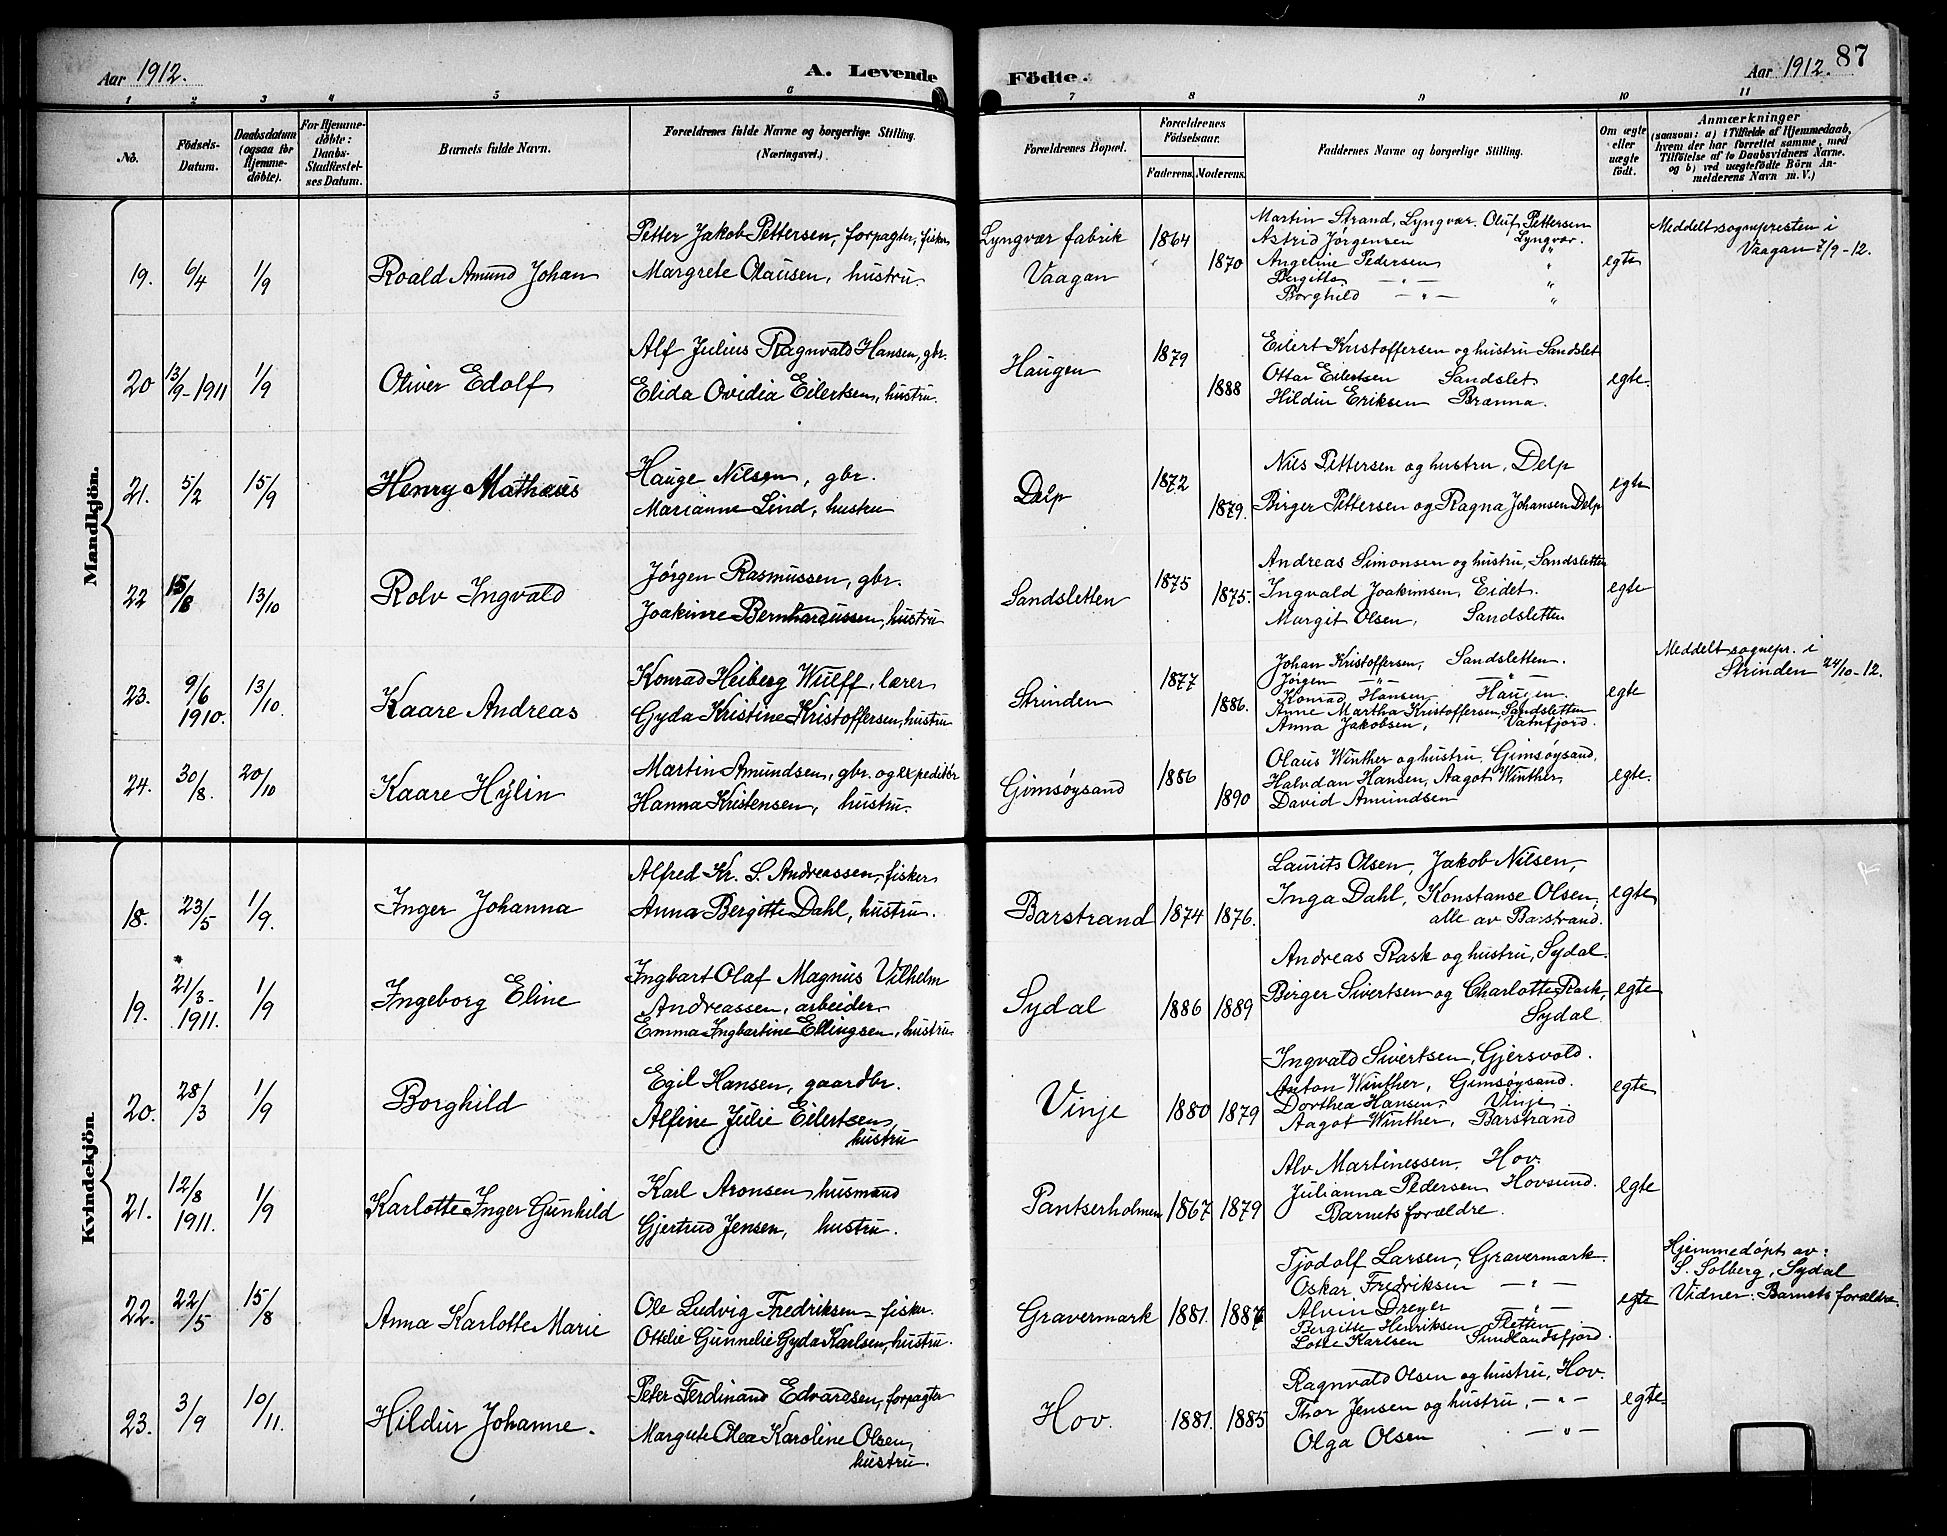 Aar 1912.
A. Levende Födte.
Aar 1912. 87
1 2 3 4 5 6 7 8 9 10 11
No.
Födsels-
Datum.
Daabsdatum
(ogsaa for
Hjemme-
döbte).
For Hjemme-
döbte:
Daabs-
Stadfestel-
ses Datum.
Barnets fulde Navn.
Forældrenes fulde Navne og borgerlige Stilling.
(Næringsvei.)
Forældrenes Bopæl.
Forældrenes
Födselsaar.
Faderens. Moderens.
Faddernes Navne og borgerlige Stilling.
Om ægte
eller
uægte
født.
Anmærkninger
(saasom: a) i Tilfælde af Hjemmedaab,
hvem der har forrettet samme, med
Tilföielse af to Daabsvidners Navne.
og b) ved uægtefödte Börn An-
melderens Navn m. V.)
Mandkjön.
19. 6/4 1/9 Roald Amund Johan
Petter Jakob Pettersen, forpagter, fisker
Margrete Olausen, hustru.
Lyngvær fabrik
Vaagan
1864 1870
Martin Strand, Lyngvær. Oluf Pettersen
Astrid Jørgensen Lyngvær.
Angeline Pedersen "
Bergitte — " — "
Borghild — " — "
egte
Meddelt sognepresten i
Vaagan 7/9-12.
20 13/9-1911 1/9 Oliver Edolf
Alf Julius Ragnvald Hansen, gbr.
Elida Ovidia Eilertsen, hustru.
Haugen
1879 1888
Eilert Kristoffersen og hustru Sandslet
Ottar Eilertsen Sandslet
Hildur Eriksen Brænna.
egte.
21. 5/2 15/9 Henry Mathæus
Hauge Nilsen, gbr.
Marianne Lind, hustru
Delp
1872 1879.
Nils Pettersen og hustru, Delp
Birger Pettersen og Ragna Johansen Delp
egte
22 15/8 13/10 Rolv Ingvald
Jørgen Rasmussen, gbr.
Joakime Bernhardussen, hustru
Sandsletten
1875 1875.
Andreas Simonsen og hustru, Sandsletten
Ingvald Joakimsen, Eidet.
Margit Olsen, Sandsletten
egte
23. 9/6 1910. 13/10. Kaare Andreas
Konrad Heiberg Wulff, lærer
Gyda Kristine Kristoffersen, hustru
Strinden
1877 1886.
Johan Kristoffersen, Sandsletten.
Jørgen — " — — " —
Konrad Hansen Haugen.
Anne Martha Kristoffersen, Sandsletten
Anna Jakobsen, Vatnfjord.
egte
Meddelt sognepr. i
Strinden 24/10-12.
24. 30/8. 20/10 Kaare Hylin
Martin Amundsen, gbr. og expeditør
Hanna Kristensen, hustru.
Gimsøysand
1886 1890
Olaus Winther og hustru, Gimsøysand,
Halvdan Hansen, Aagot Winther
David Amundsen
egte.
Kvindekjön.
18. 23/5 1/9. Inger Johanna
Alfred Kr. S. Andreassen, fisker
Anna Bergitte Dahl, hustru.
Barstrand
1874 1876.
Laurits Olsen, Jakob Nilsen,
Inga Dahl, Konstanse Olsen,
alle av Barstrand.
egte
19. 21/3-1911. 1/9 Ingeborg Eline
Ingbart Olaf Magnus Vilhelm
Andreassen, arbeider
Emma Ingbartine Ellingsen, hustru
Sydal
1886 1889
Andreas Rask og hustru, Sydal.
Birger Sivertsen og Charlotte Rask,
Sydal.
egte
20. 28/3 1/9 Borghild
Egil Hansen, gaardbr.
Alfine Julie Eilertsen,
hustru
Vinje
1880 1879
Ingvald Sivertsen, Gjersvold.
Anton Winther, Gimsøysand.
Dorthea Hansen, Vinje
Aagot Winther, Barstrand
egte
21. 12/8 1911. 1/9 Karlotte Inger Gunhild
Karl Aronsen, husmand
Gjertrud Jensen, hustru.
Pantserholmen
1867 1879
Alv Martinessen, Hov.
Julianna Pedersen Hovsund.
Barnets forældre.
egte
22. 22/5 15/8 Anna Karlotte Marie
Ole Ludvig Fredriksen, fisker.
Ottelie Gunnelie Gyda Karlsen, hustru.
Gravermark
1881.
Tjodolf Larsen, Gravermark.
Oskar Fredriksen — " —
Alvin Dreyer — " —
Bergitte Henriksen Sletten
Lotte Karlsen Sundlandsfjord.
egte
Hjemmedøpt av:
S. Solberg, Sydal
Vidner: Barnets forældre.
23. 3/9 10/11. Hildur Johanne.
Peter Ferdinand Edvardsen, forpagter
Margrete Olea Karoline Olsen,
hustru.
Hov.
1881. 1885
Ragnvald Olsen og hustru, Hov.
Thor Jensen og hustru, — " —
Olga Olsen — " —
egte